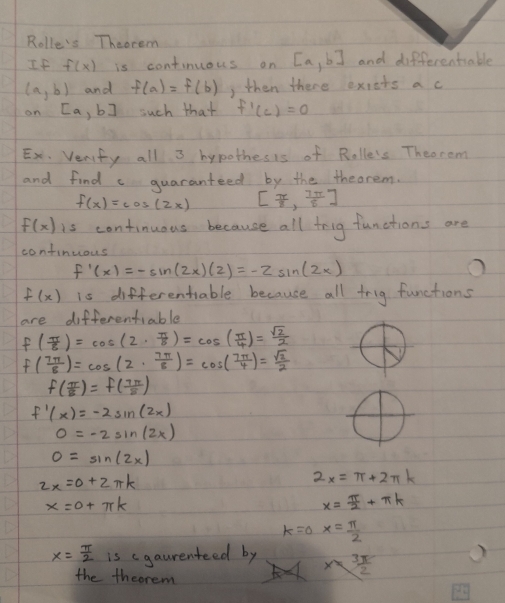 Rolle's Theorem
If f(x) is continuous on [a,b] and differentiable
(a,b) and f(a)=f(b), then there exists a c
on [a,b] such that f'(c)=0
Ex. Verify all 3 hypothesis of Rolle's Theorem
and find c guaranteed by the theorem.
f(x)=cos(2x) [π/8, 7π/8]
f(x) is continuous because all trig functions are
continuous
f'(x)=-sin(2x)(2)=-2sin(2x)
f(x) is differentiable because all trig functions
are differentiable
f(π/8)=cos(2·π/8)=cos(π/4)=√2/2
f(7π/8)=cos(2·7π/8)=cos(7π/4)=√2/2
f(π/8)=f(7π/8)
f'(x)=-2sin(2x)
0=-2sin(2x)
0=sin(2x)
2x=0+2πk 2x=π+2πk
x=0+πk x=π/2+πk
k=0 x=π/2
x=π/2 is c gaurenteed by
the theorem
x=3π/2